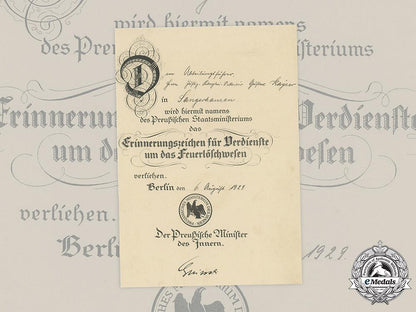 wird hiermit namens
des Preu
ministeriums
Erinnerungs
Verdienste
um das
wesen
verliehen.
Berlin
1929
Dem Abteilungsführer
Herrn
in Sangerhausen
wird hiermit namens
des Preußischen Staatsministeriums
das
Erinnerungszeichen für Verdienste
um das Feuerlöschwesen
verliehen.
Berlin den 6. August 1929
Der Preußische Minister
des Innern.
eMedals